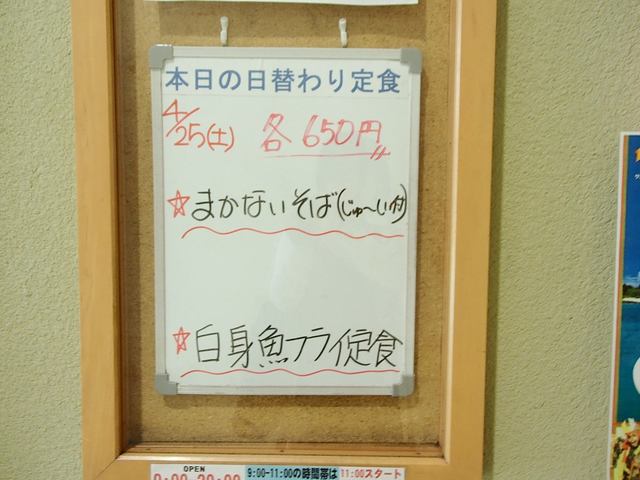 本日の日替わり定食
4/25(土) 各650円
☆まかないそば(じゅ〜しぃ付)
☆白身魚フライ定食
OPEN
9:00-11:00の時間帯は 11:00スタート